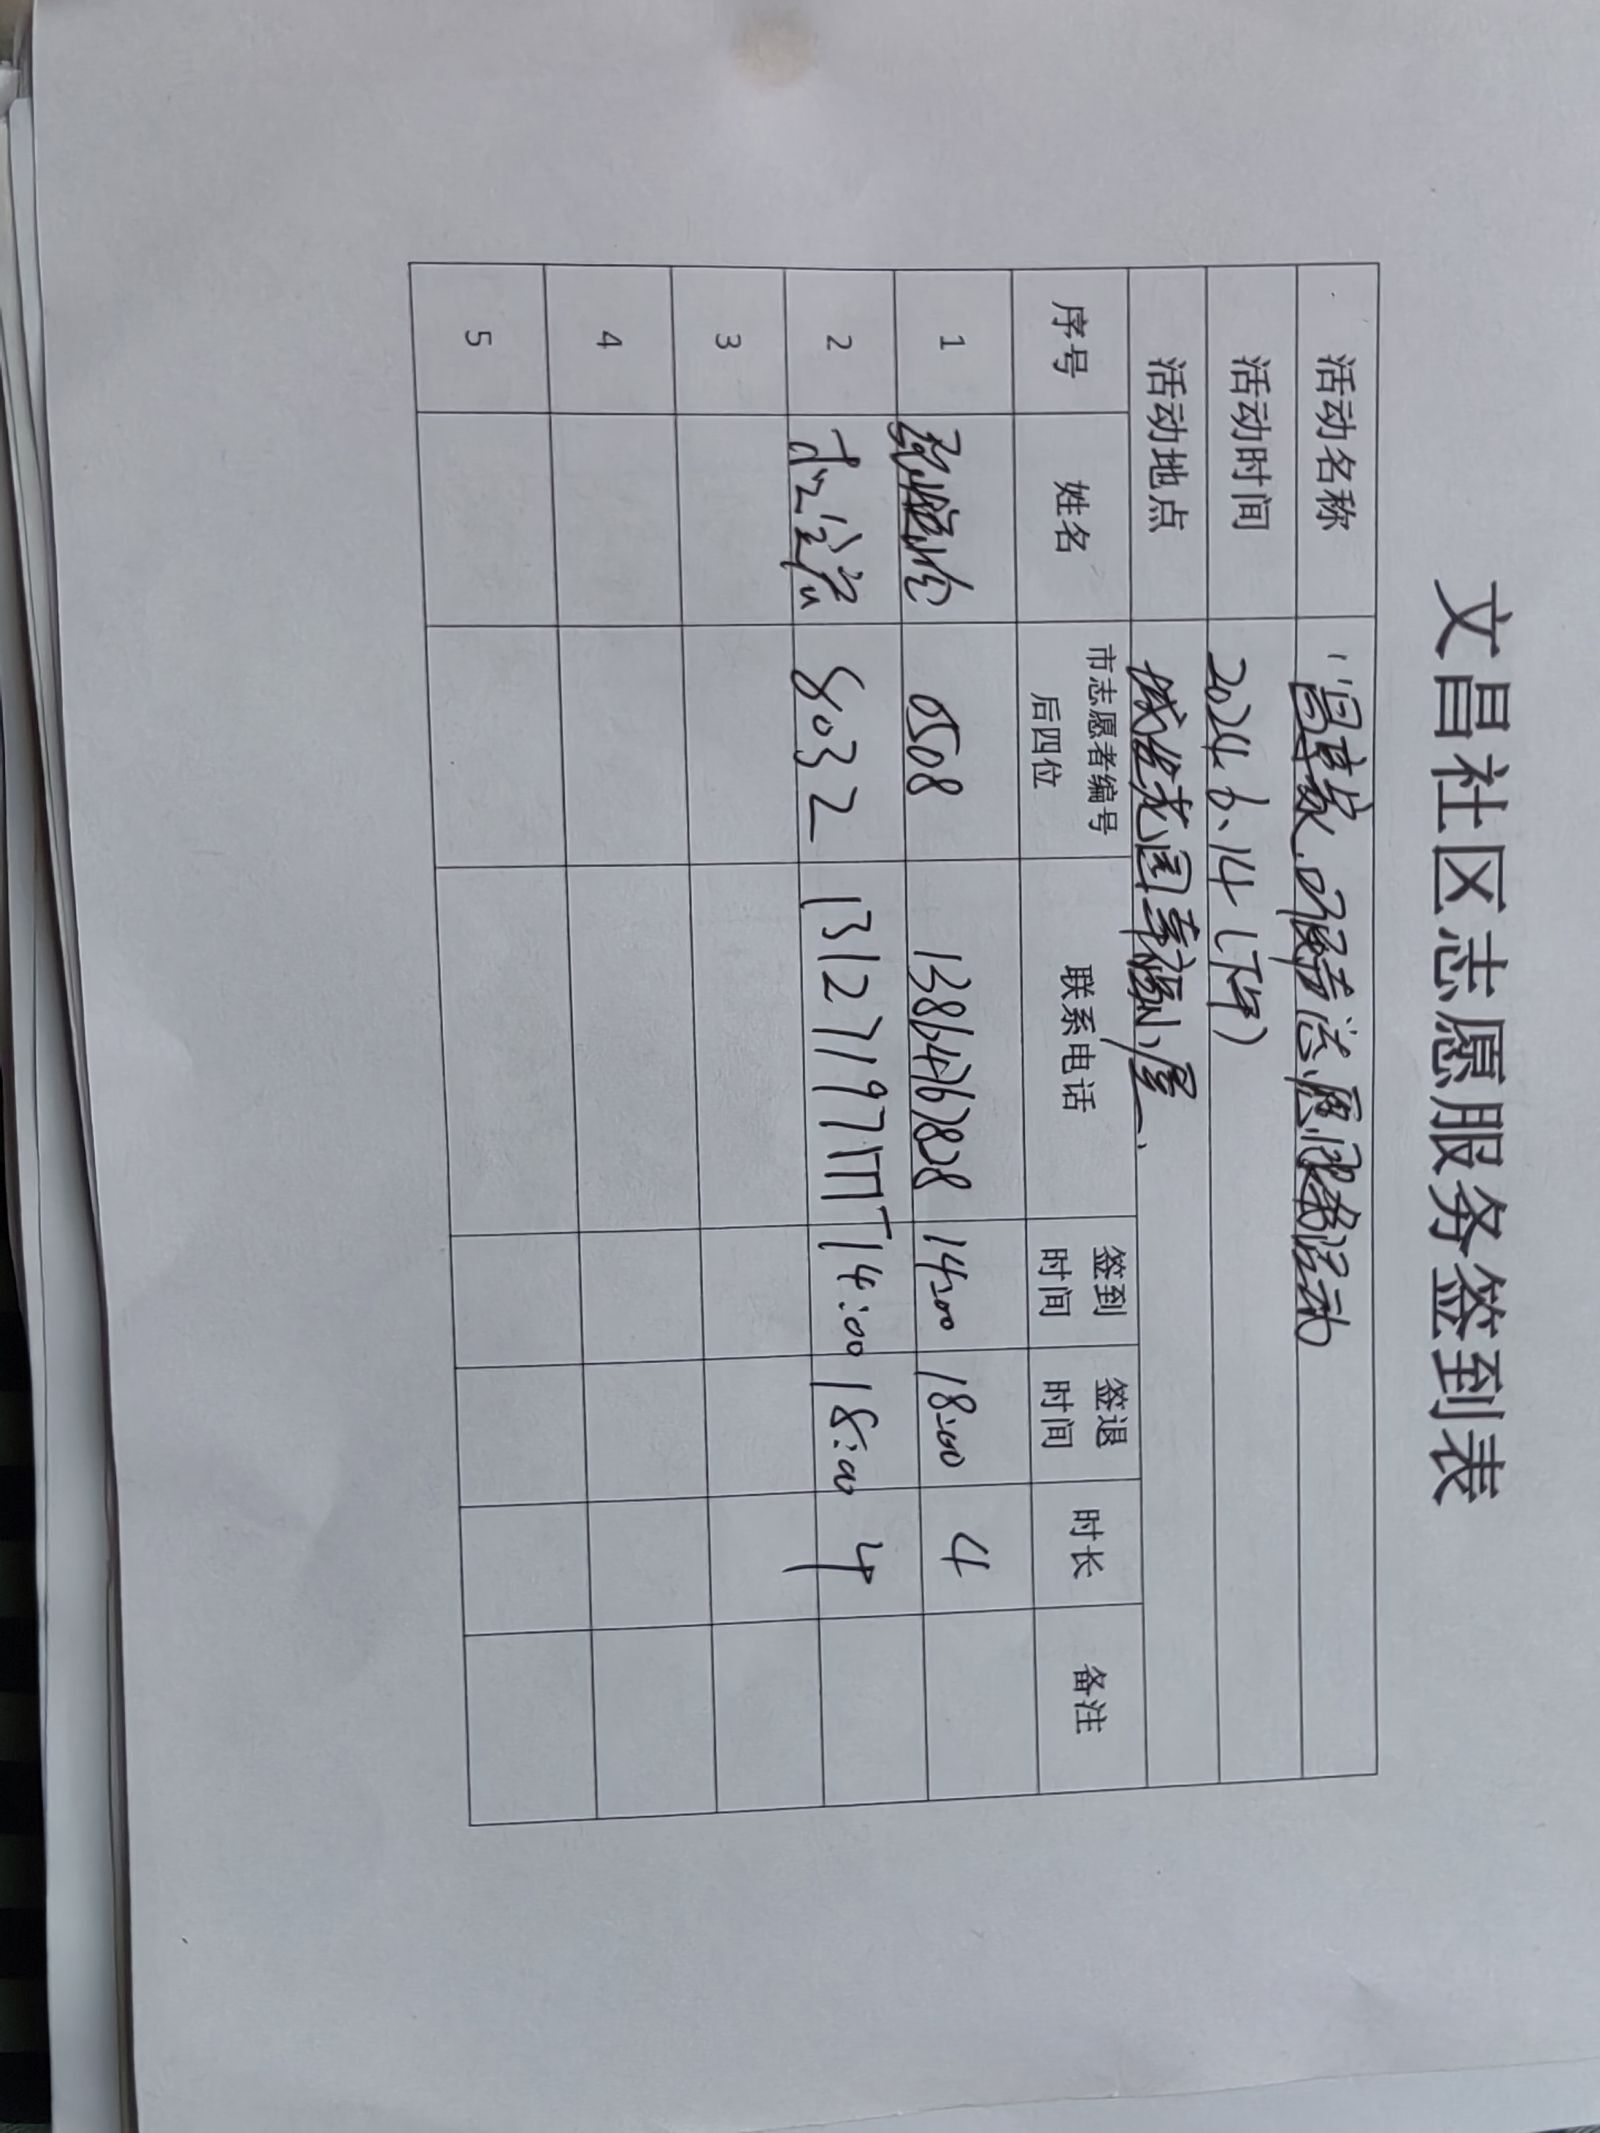 文昌社区志愿服务签到表
活动名称
活动时间 2024.6.14（下午）
活动地点 城发花园幸福小屋
序号 姓名 市志愿者编号后四位 联系电话 签到时间 签退时间 时长 备注
1 0508 13864767828 14:00 18:00 4
2 8032 14:00 18:00 4
3
4
5